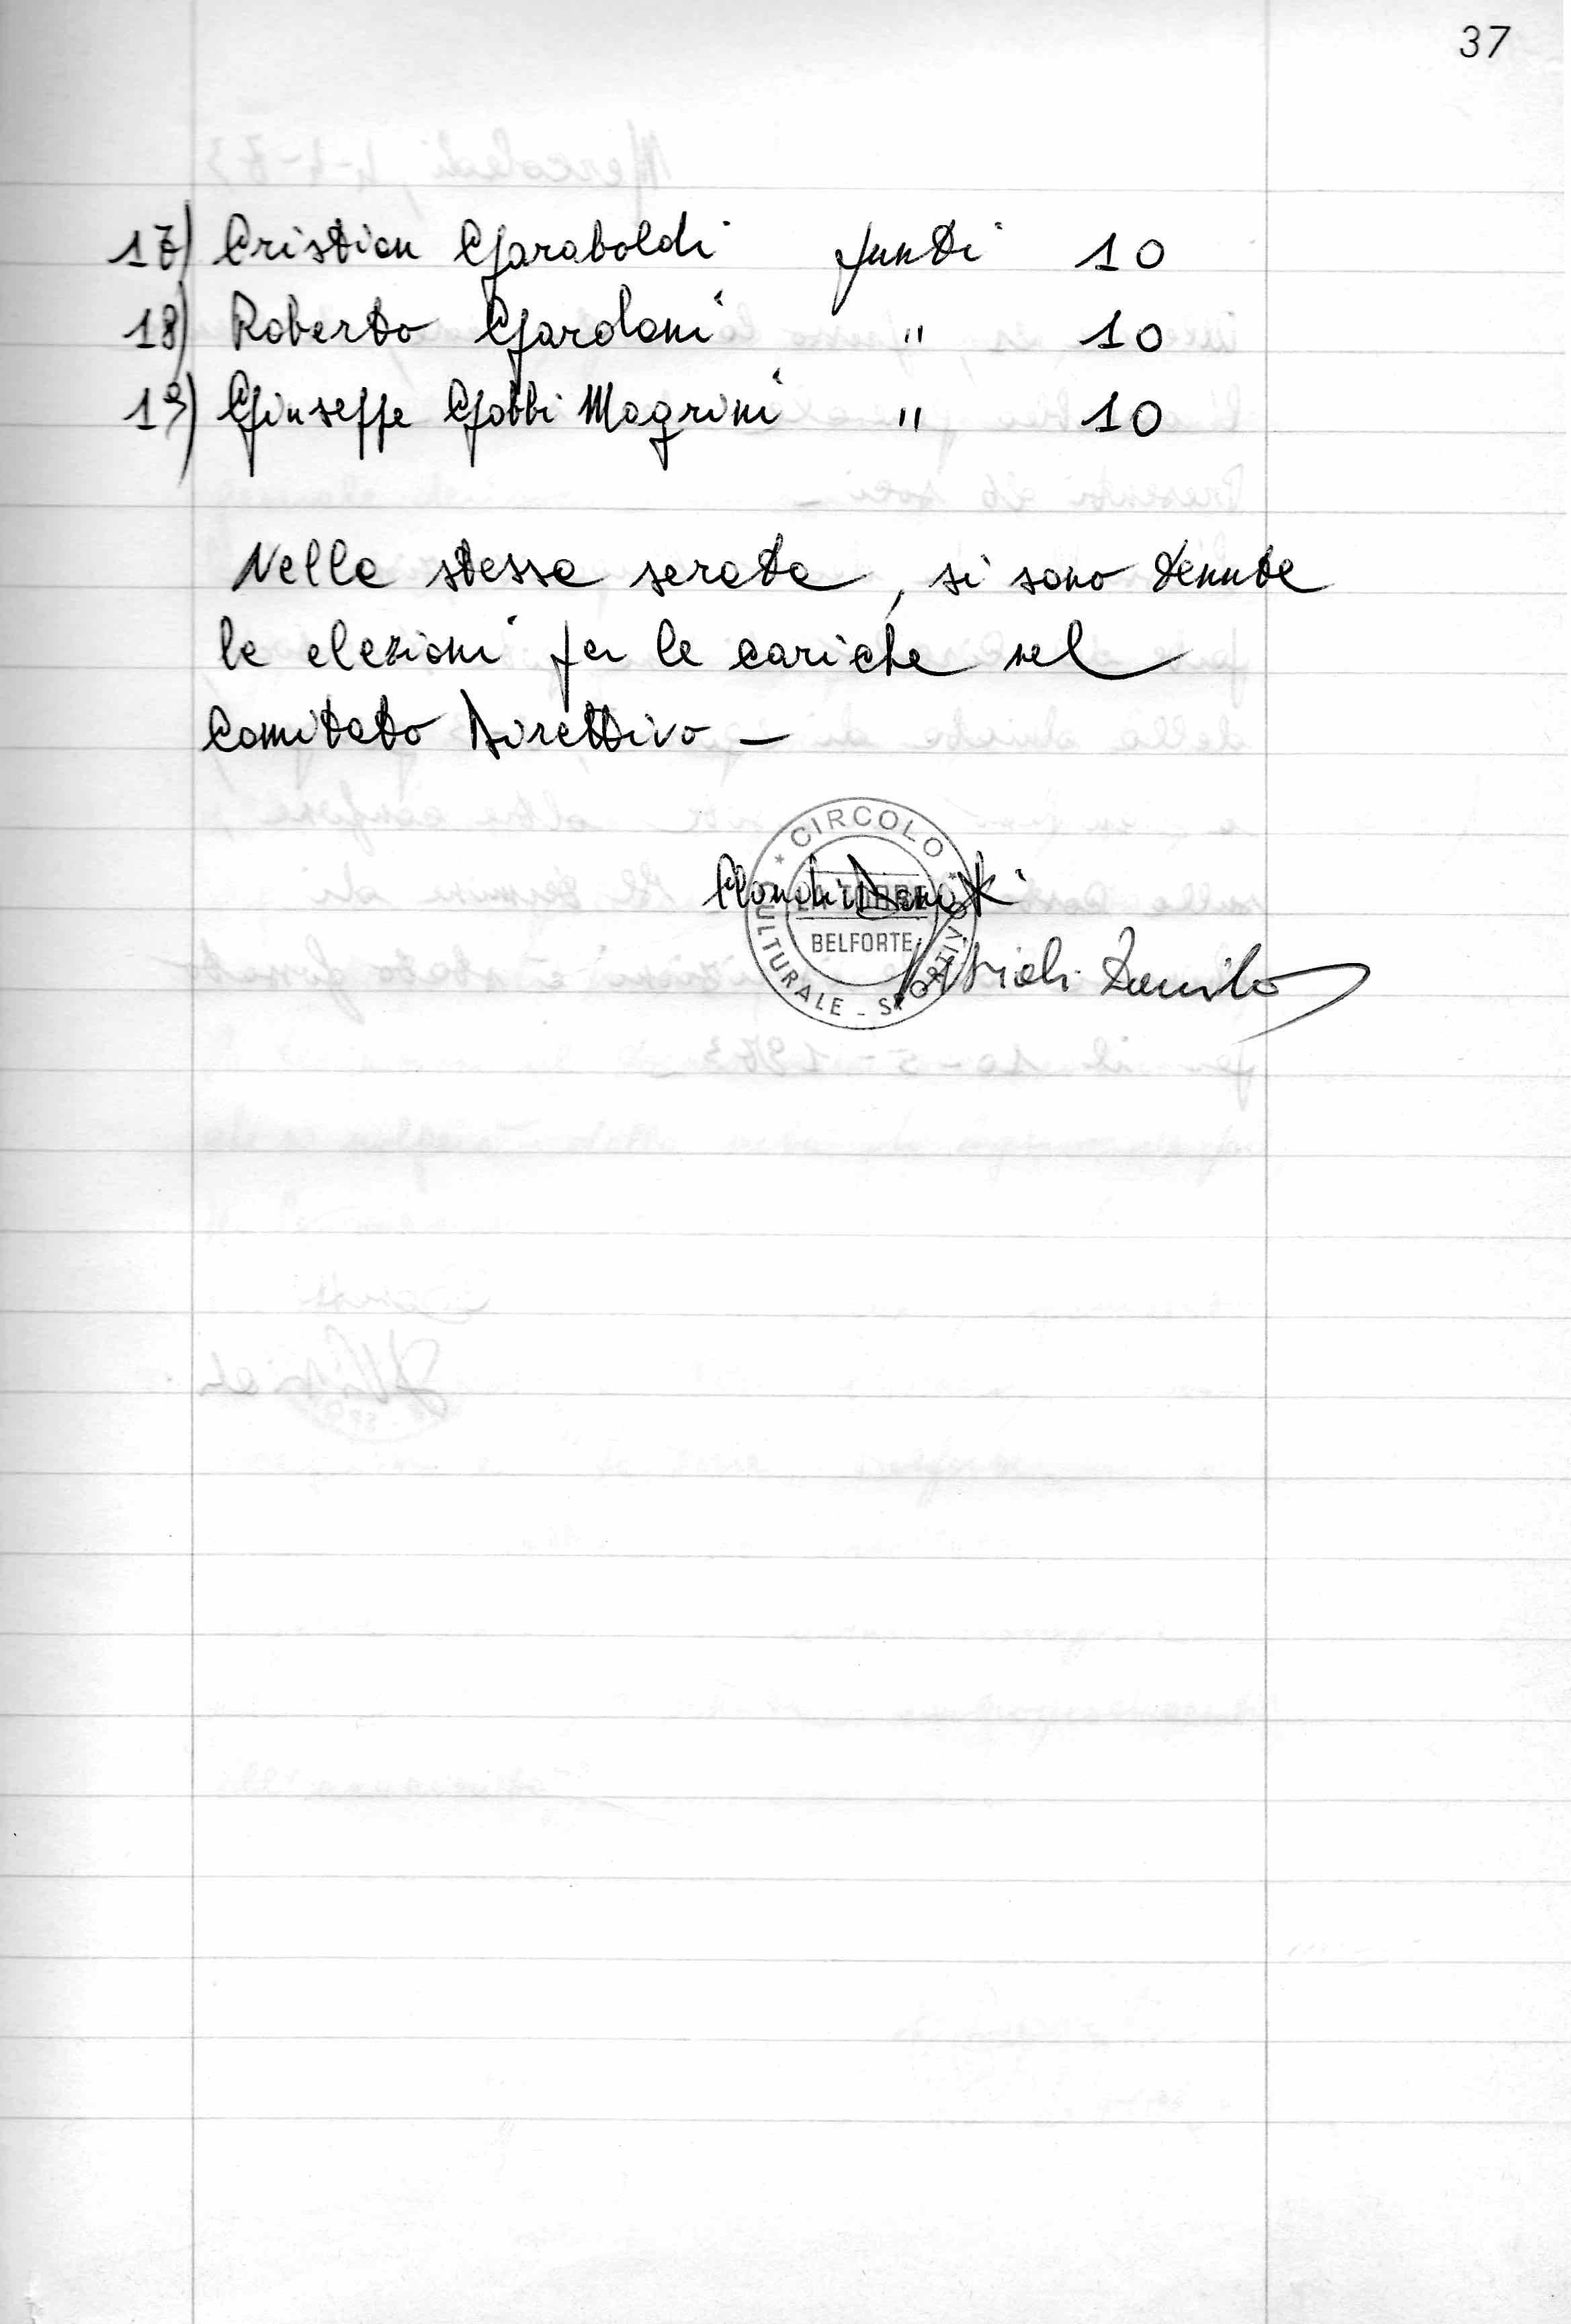 37
17) Cristian Garaboldi punti 10
18) Roberto Gardani " 10
19) Giuseppe Gobbi Magrini " 10
Nella stessa serata, si sono tenute
le elezioni per le cariche nel
Comitato Direttivo -
* CIRCOLO *
CULTURALE - SPORTIVO
LA TORRE
BELFORTE
Danilo